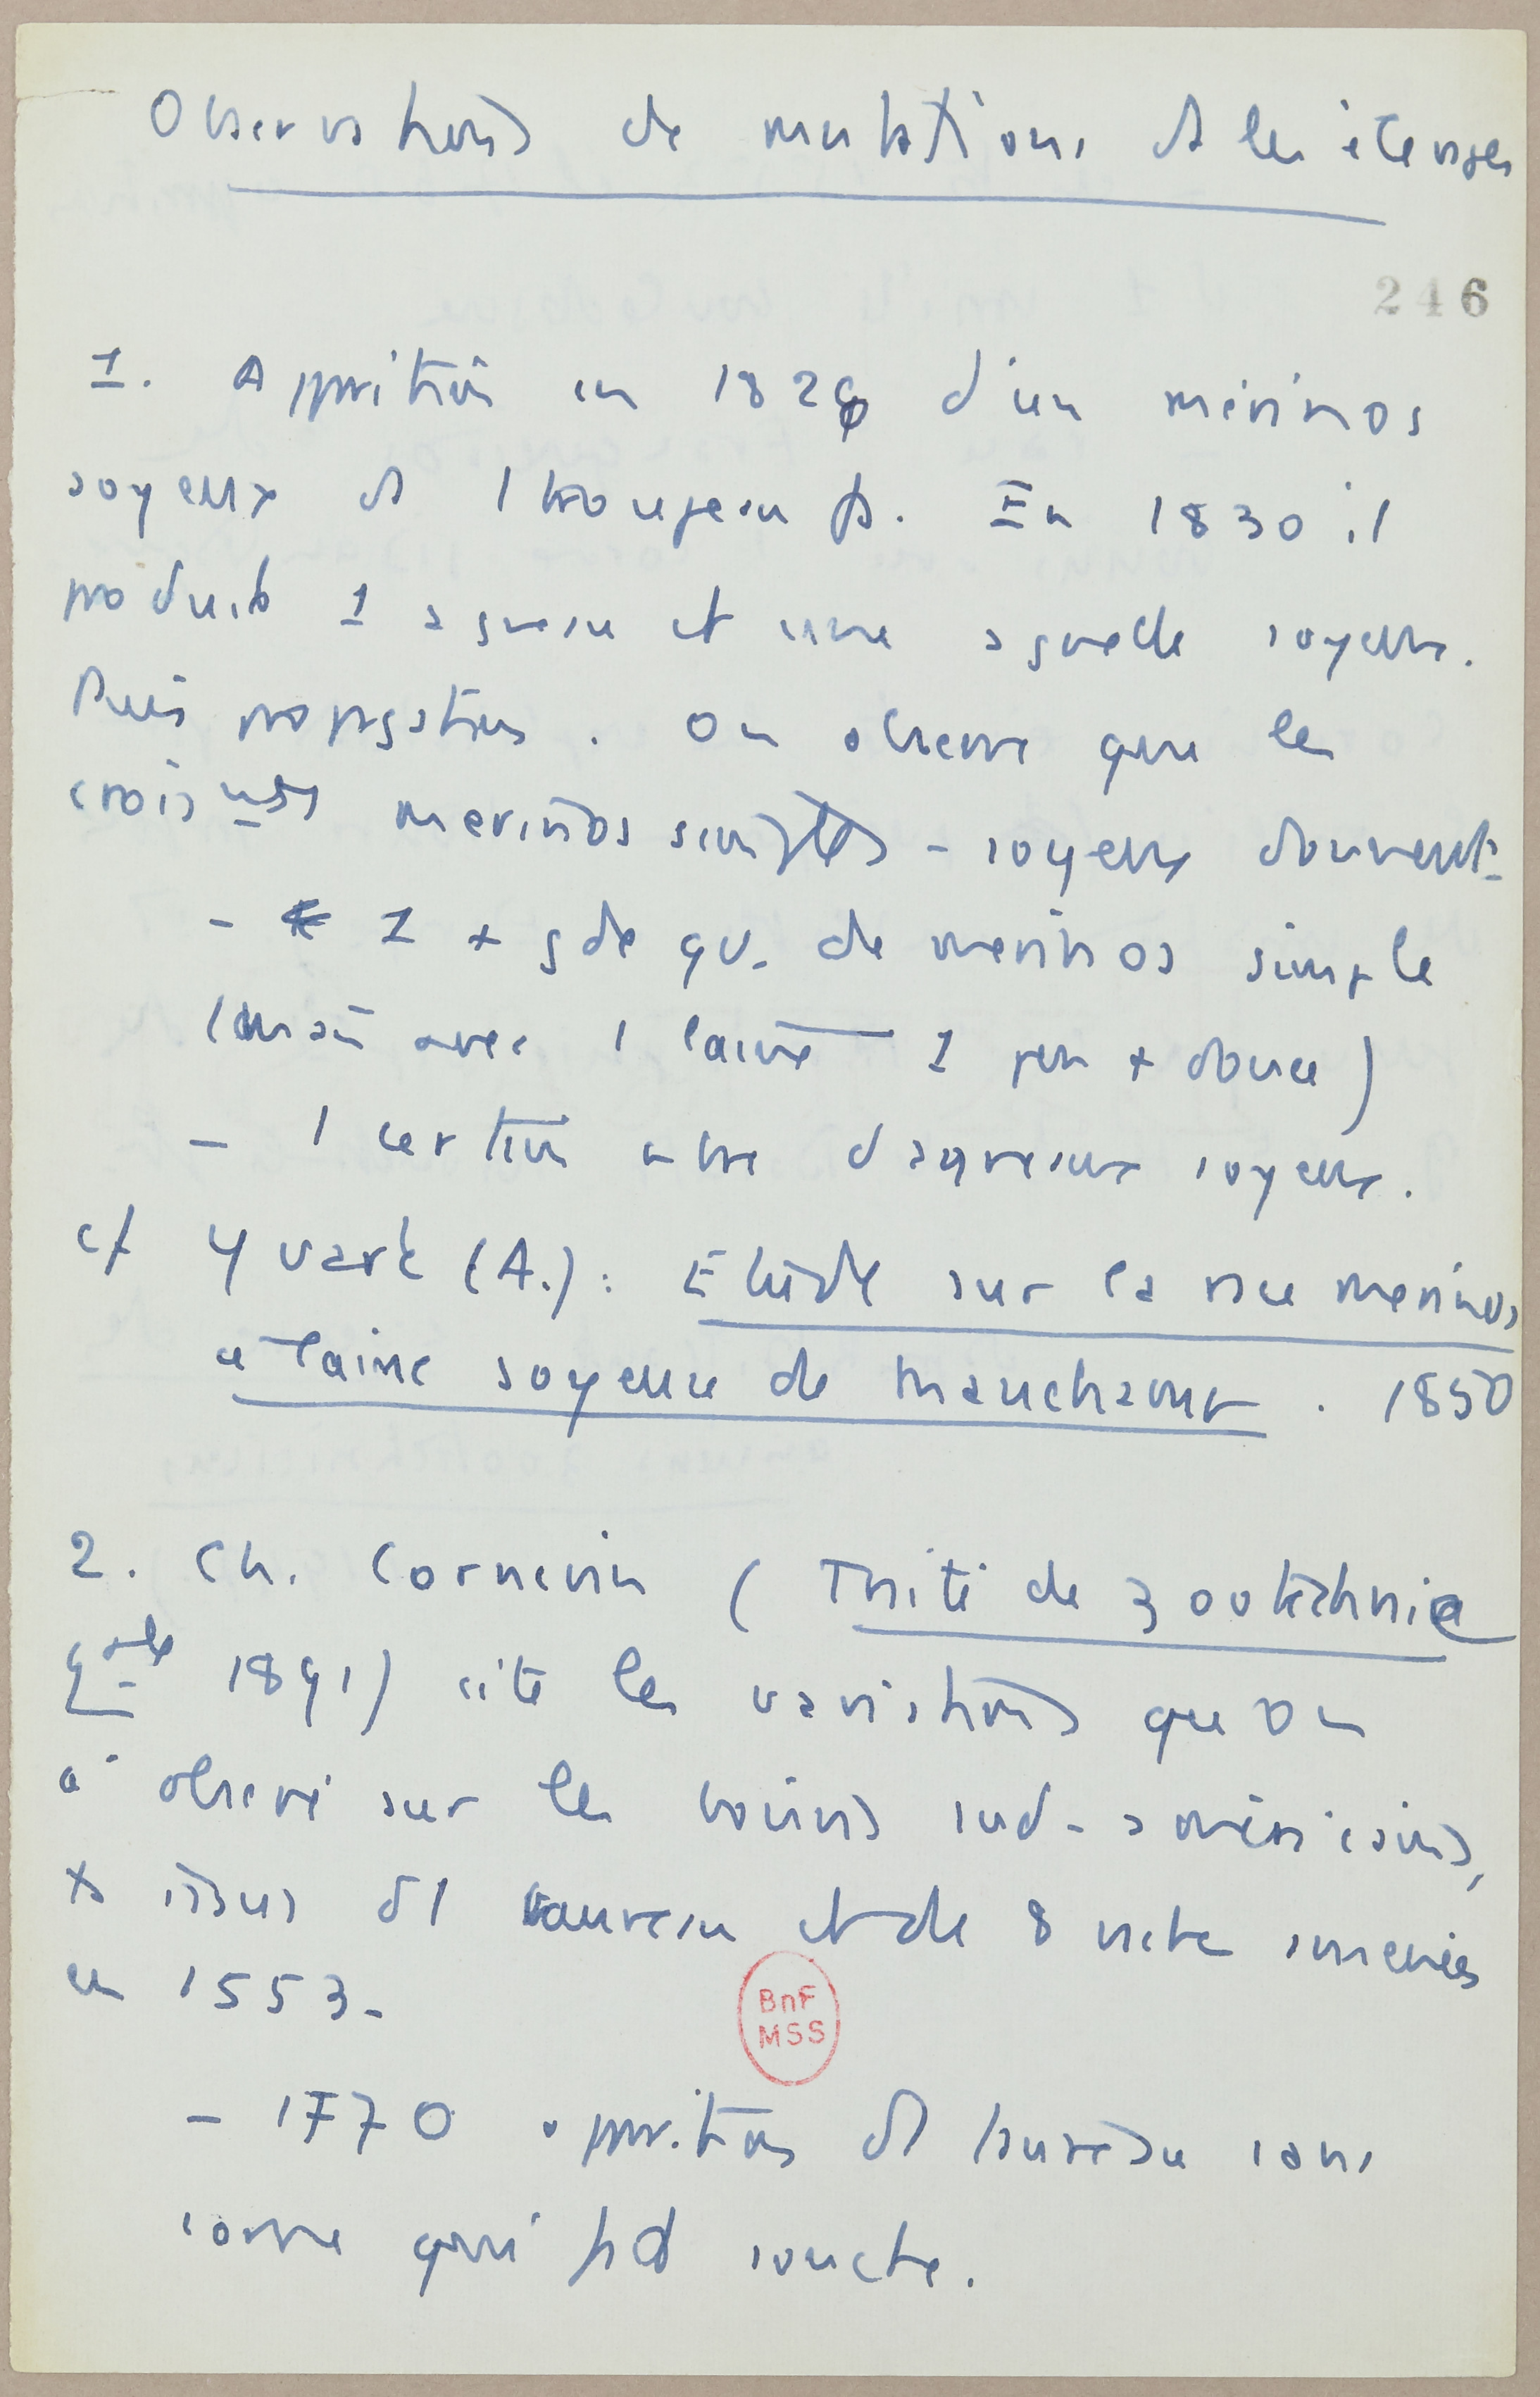 Observations de mutations ds les élevages
246
1. Apparition en 1828 d'un mérinos
soyeux ds 1 troupeau fs. En 1830 il
produit 1 agneau et une agnelle soyeux.
Puis propagation. On observe que les
croisements merinos simples - soyeux donnent :
- 1 + gde qu. de merinos simple
(mais avec 1 laine 1 peu + douce)
- 1 certain nbre d'agneaux soyeux.
cf Yvart (A.) : Etude sur la race merinos
à laine soyeuse de Mauchamp. 1850
2. Ch. Cornevin (Traité de zootechnie
gale 1891) cite les variations que on
a observé sur les bovins sud-américains,
ts issus d'1 taureau et de 8 vaches amenées
en 1553.
- 1770 apparition d'1 taureau sans
corne qui fait souche.
BnF
MSS